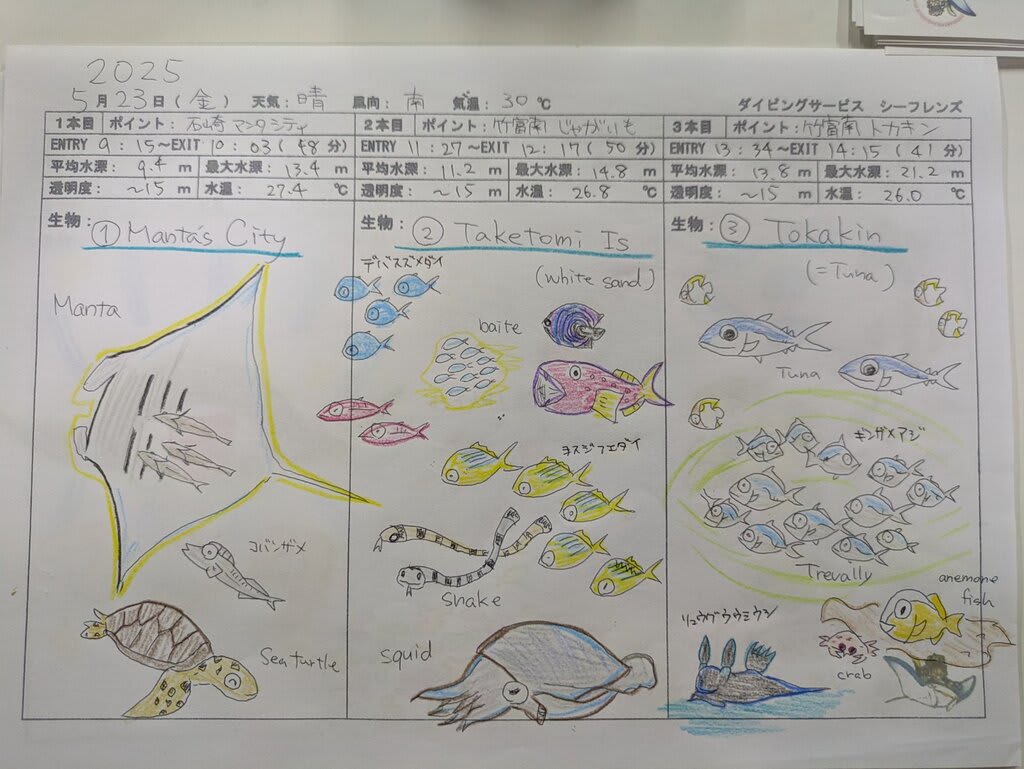 2025
5月23日(金) 天気:晴 風向:南 気温:30℃ ダイビングサービス シーフレンズ
1本目 ポイント:石崎 マンタシティ
ENTRY 9:15~EXIT 10:03(48分)
平均水深:9.4 m 最大水深:13.4 m
透明度:~15 m 水温:27.4 ℃
生物:①Manta's City
Manta
コバンザメ
Sea turtle
2本目 ポイント:竹富南 じゃがいも
ENTRY 11:27~EXIT 12:17(50分)
平均水深:11.2 m 最大水深:14.8 m
透明度:~15 m 水温:26.8 ℃
生物:② Taketomi Is
デバスズメダイ
(white sand)
baite
ヨスジフエダイ
Snake
squid
3本目 ポイント:竹富南 トカキン
ENTRY 13:34~EXIT 14:15(41分)
平均水深:13.8 m 最大水深:21.2 m
透明度:~15 m 水温:26.0 ℃
生物:③ Tokakin
(=Tuna)
Tuna
ギンガメアジ
Trevally
anemone
fish
リュウグウウミウシ
crab